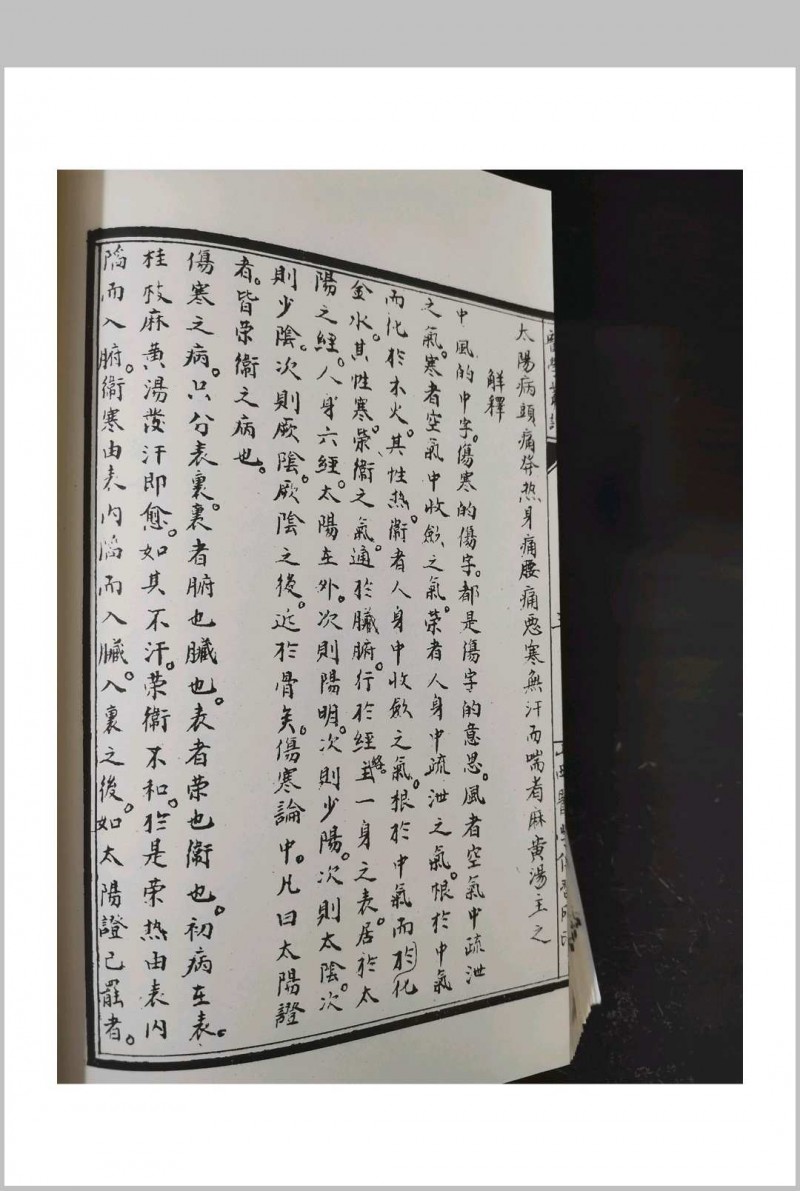 太陽病頭痛發热身痛腰痛惡寒無汗而喘者麻黄湯主之
解釋
中風的中字。傷寒的傷字。都是傷字的意思。風者空氣中疏泄
之氣。寒者空氣中收歛之氣。荣者人身中疏泄之氣。根於中氣
而化於木火。其性热。衞者人身中收歛之氣。根於中氣而於化
金水。其性寒。荣衞之氣。通於臟腑。行於經絡。主一身之表。居於太
陽之經。人身六經。太陽在外。次則陽明。次則少陽。次則太陰。次
則少陰。次則厥陰。厥陰之後。近於骨矣。傷寒論中。凡曰太陽證
者。皆荣衞之病也。
傷寒之病。只分表裏。裏者腑也臟也。表者荣也衞也。初病在表。
桂枝麻黄湯發汗即愈。如其不汗。荣衞不和。於是荣热由表內
陷而入腑。衞寒由表內陷而入臟。入裏之後。如太陽證已罷者。